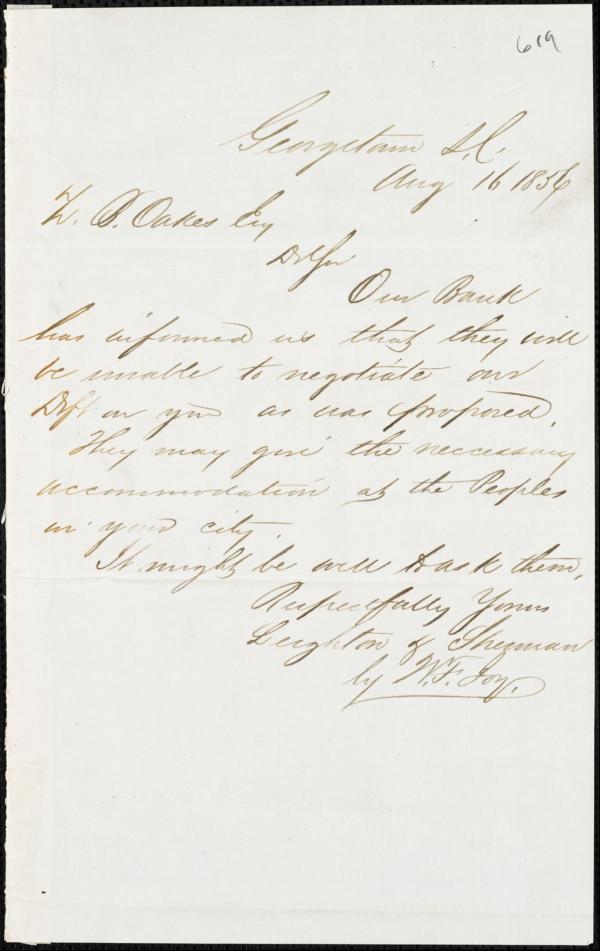 619
Georgetown S.C.
Aug 16 1856
Z. B. Oakes Esq
Dr Sir
Our Bank
has informed us that they will
be unable to negotiate our
Dft on you as was proposed.
They may give the neccessary
accommodation at the Peoples
in your city.
It might be well to ask them,
Respectfully Yours
Leighton & Sherman
by W. F. Joy.